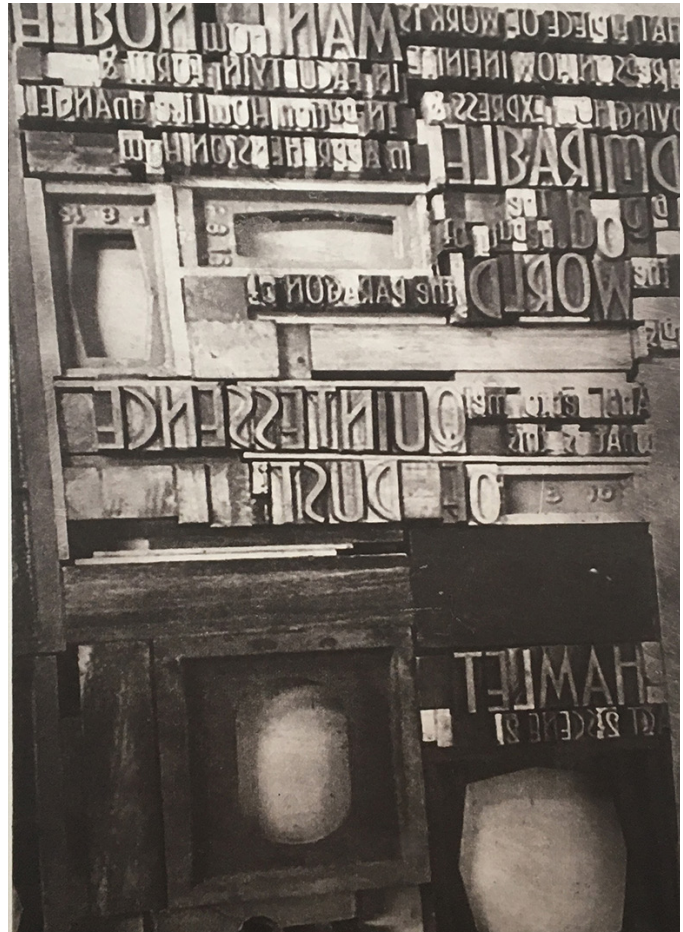 HAT A PIECE OF WORK IS MAN how NOBLE
REASON HOW INFINITE IN FACULTY IN FORM &
OVING HOW EXPRESS &
DMIRABLE IN action HOW like an ANGEL
in APPREHENSION HOW
a god. the beauty of
the WORLD the PARAGON of
And to me QUINTESSENCE
what is this
OF DUST
HAMLET
ACT 2 SCENE 2